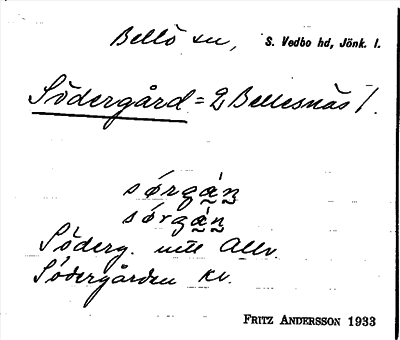 Bellö sn, S. Vedbo hd, Jönk. l.
Södergård = 2 Bellesnäs 1.
sørgán
sørgán
Söderg. uttl Allv.
Södergården kv.
FRITZ ANDERSSON 1933